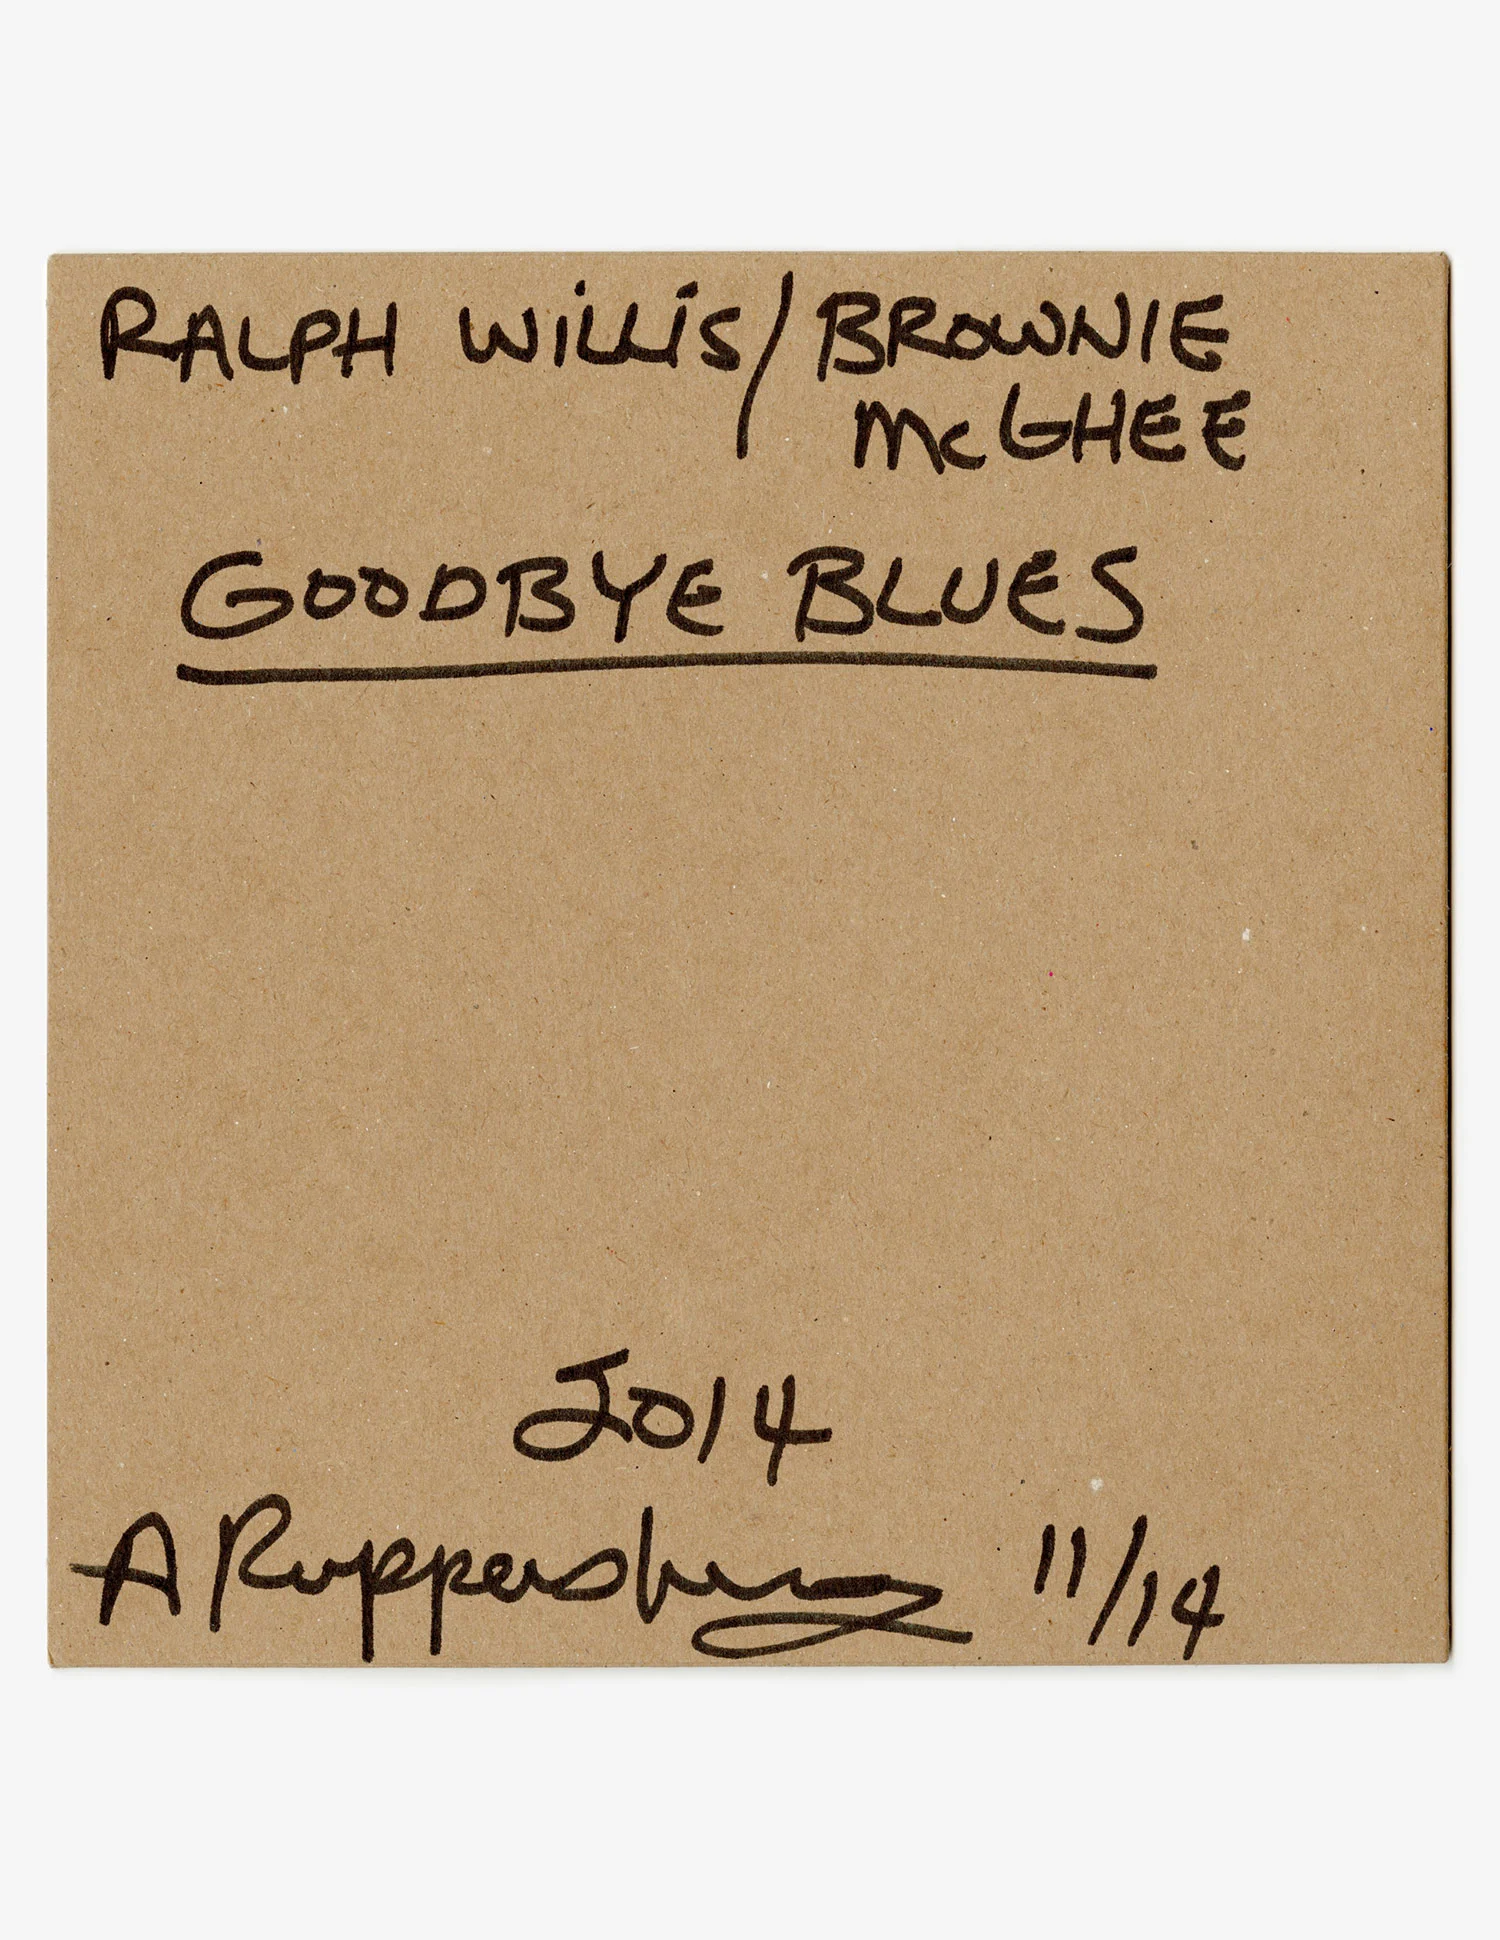 RALPH WILLIS/BROWNIE
McGHEE
GOODBYE BLUES
2014
A Ruppersberg 11/14